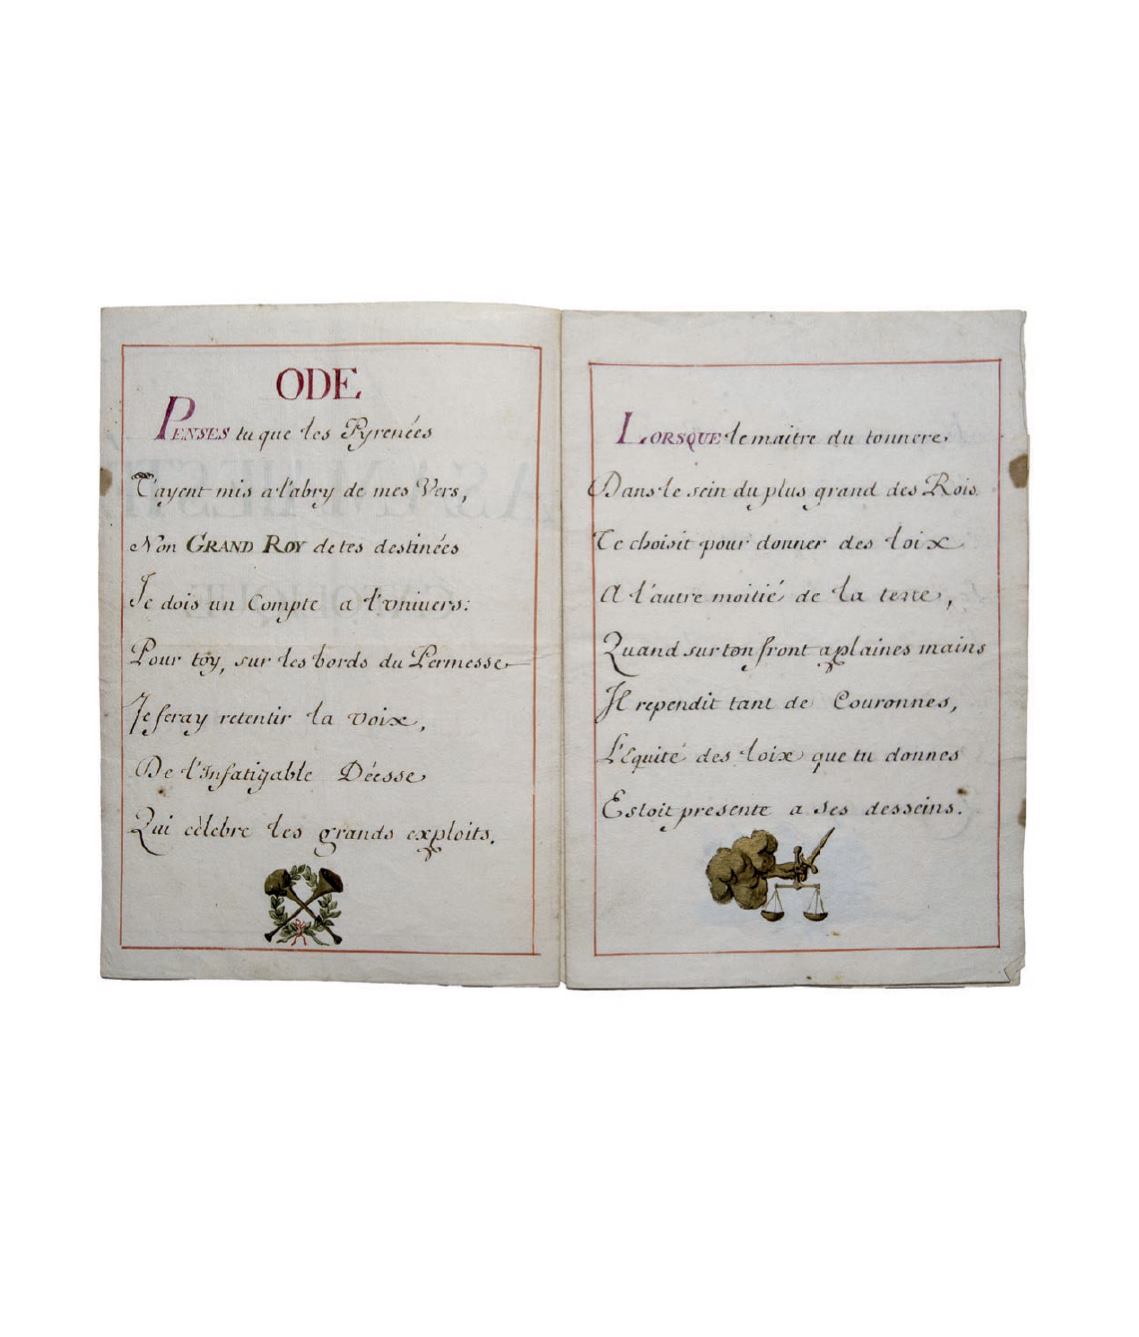 ODE
PENSES tu que les Pyrenées
T'ayent mis a l'abry de mes Vers,
Non GRAND ROY de tes destinées
Je dois un Compte a l'vniuers:
Pour toy, sur les bords du Permesse
Je feray retentir la voix,
De l'Infatigable Déesse
Qui cèlebre les grands exploits.
LORSQUE le maitre du tonnere
Dans le sein du plus grand des Rois
Te choisit pour donner des loix
A l'autre moitié de la terre,
Quand sur ton front a plaines mains
Il rependit tant de Couronnes,
L'Equité des loix que tu donnes
Estoit presente a ses desseins.